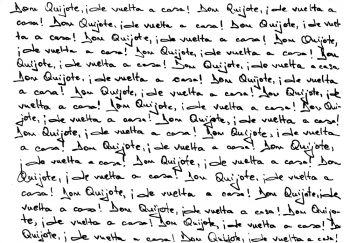 Don Quijote, ¡de vuelta a casa! Don Quijote, ¡de vuelta a
casa! Don Quijote, ¡de vuelta a casa! Don Quijote, ¡de vuel
ta a casa! Don Quijote, ¡de vuelta a casa! Don Quijote,
¡de vuelta a casa! Don Quijote, ¡de vuelta a casa! Don
Quijote, ¡de vuelta a casa! Don Quijote, ¡de vuelta a casa
Don Quijote, ¡de vuelta a casa! Don Quijote, ¡de vuelta
a casa! Don Quijote, ¡de vuelta a casa! Don Quijote, ¡de
vuelta a casa! Don Quijote, ¡de vuelta a casa! Don Qui-
jote, ¡de vuelta a casa! Don Quijote, ¡de vuelta a casa!
Don Quijote, ¡de vuelta a casa! Don Quijote, ¡de vuelta
a casa! Don Quijote, ¡de vuelta a casa! Don Quijote,
¡de vuelta a casa! Don Quijote, ¡de vuelta a casa! Don
Quijote, ¡de vuelta a casa! Don Quijote, ¡de vuelta a
casa! Don Quijote, ¡de vuelta a casa! Don Quijote, ¡de
vuelta a casa! Don Quijote, ¡de vuelta a casa! Don Quijo-
te, ¡de vuelta a casa! Don Quijote, ¡de vuelta a casa! Don
Quijote, ¡de vuelta a casa! Don Quijote, ¡de vuelta a casa!